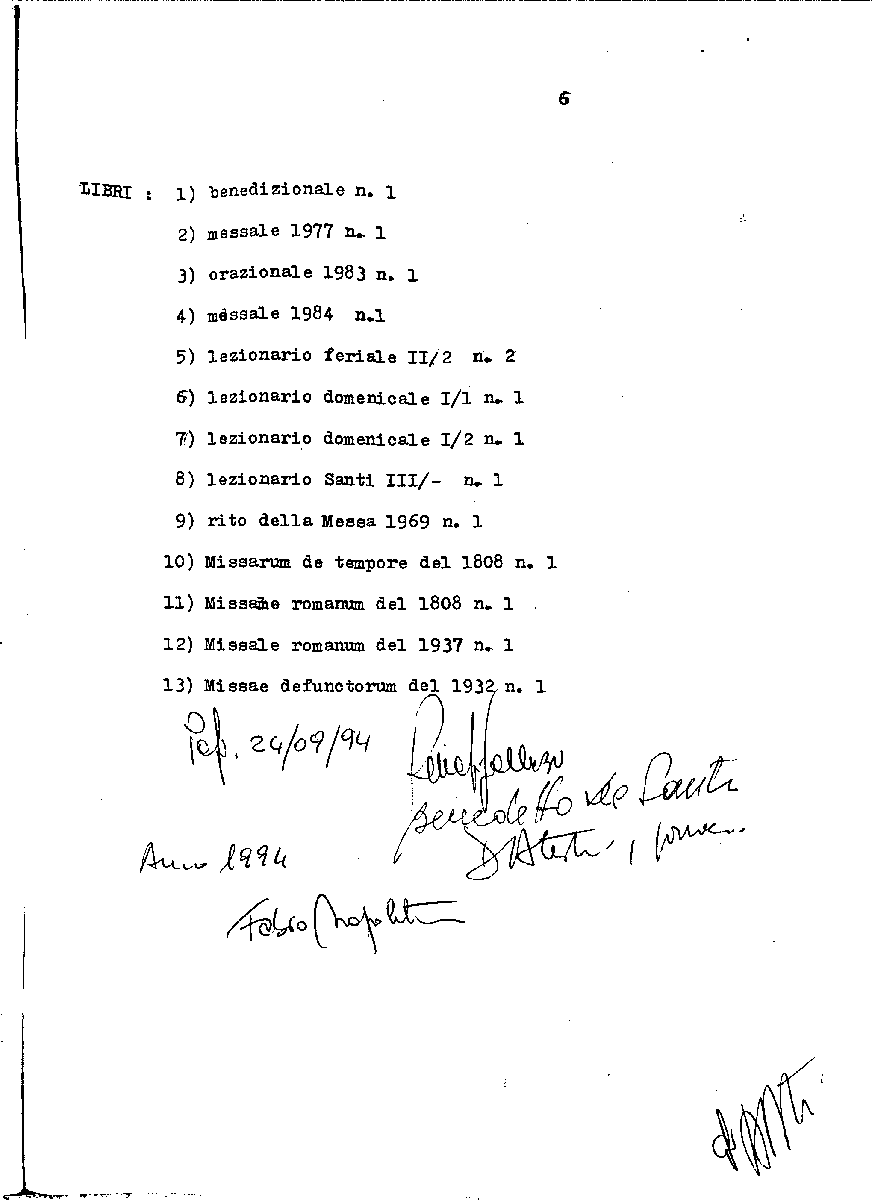 6
LIBRI : 1) benedizionale n. 1
2) messale 1977 n. 1
3) orazionale 1983 n. 1
4) messale 1984 n.1
5) lezionario feriale II/2 n. 2
6) lezionario domenicale I/1 n. 1
7) lezionario domenicale I/2 n. 1
8) lezionario Santi III/- n. 1
9) rito della Messa 1969 n. 1
10) Missarum de tempore del 1808 n. 1
11) romanum del 1808 n. 1
12) Missale romanum del 1937 n. 1
13) Missae defunctorum del 1932 n. 1
24/09/94
Benedetto De Santi
Anno 1994
Fabio